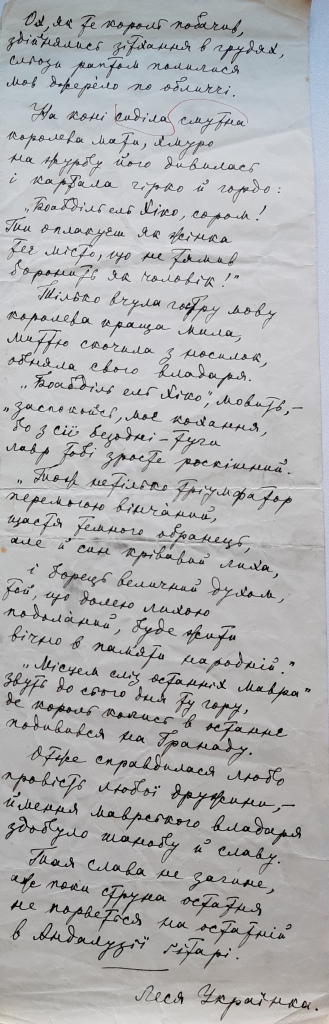 Ох, як те король побачив,
здійнялись зітхання в грудях,
сльози раптом полилися
мов джерело по обличчі.
На коні сиділа смутна
королева мати, хмуро
на журбу його дивилась
і картала гірко й гордо:
„Боабділь ель Хіко, сором!
Ти оплакуєш як жінка
теє місто, що не тямив
боронить як чоловік!"
Тілько вчула гостру мову
королева краща мила,
миттю скочила з носилок,
обняла свого владаря.
„Боабділь ель Хіко", мовить, –
„заспокойсь, моє кохання,
бо з сії безодні-туги
лавр тобі зросте розкішний.
„Тож не тілько тріумфатор
перемогою вінчаний,
щастя темного обранець,
але й син крівавий лиха,
і борець величний духом,
той, що долею лихою
подоланий, буде жити
вічно в памяти народній."
„Місцем сліз останніх мавра"
звуть до сього дня ту гору,
де король колись в останнє
подивився на Гранаду.
Отже справдилася любо
провість любої дружини, –
ймення маврського владаря
здобуло шанобу й славу.
Тая слава не загине,
аж поки струна остатня
не порветься на остатній
в Андалузії гітарі.
Леся Українка.